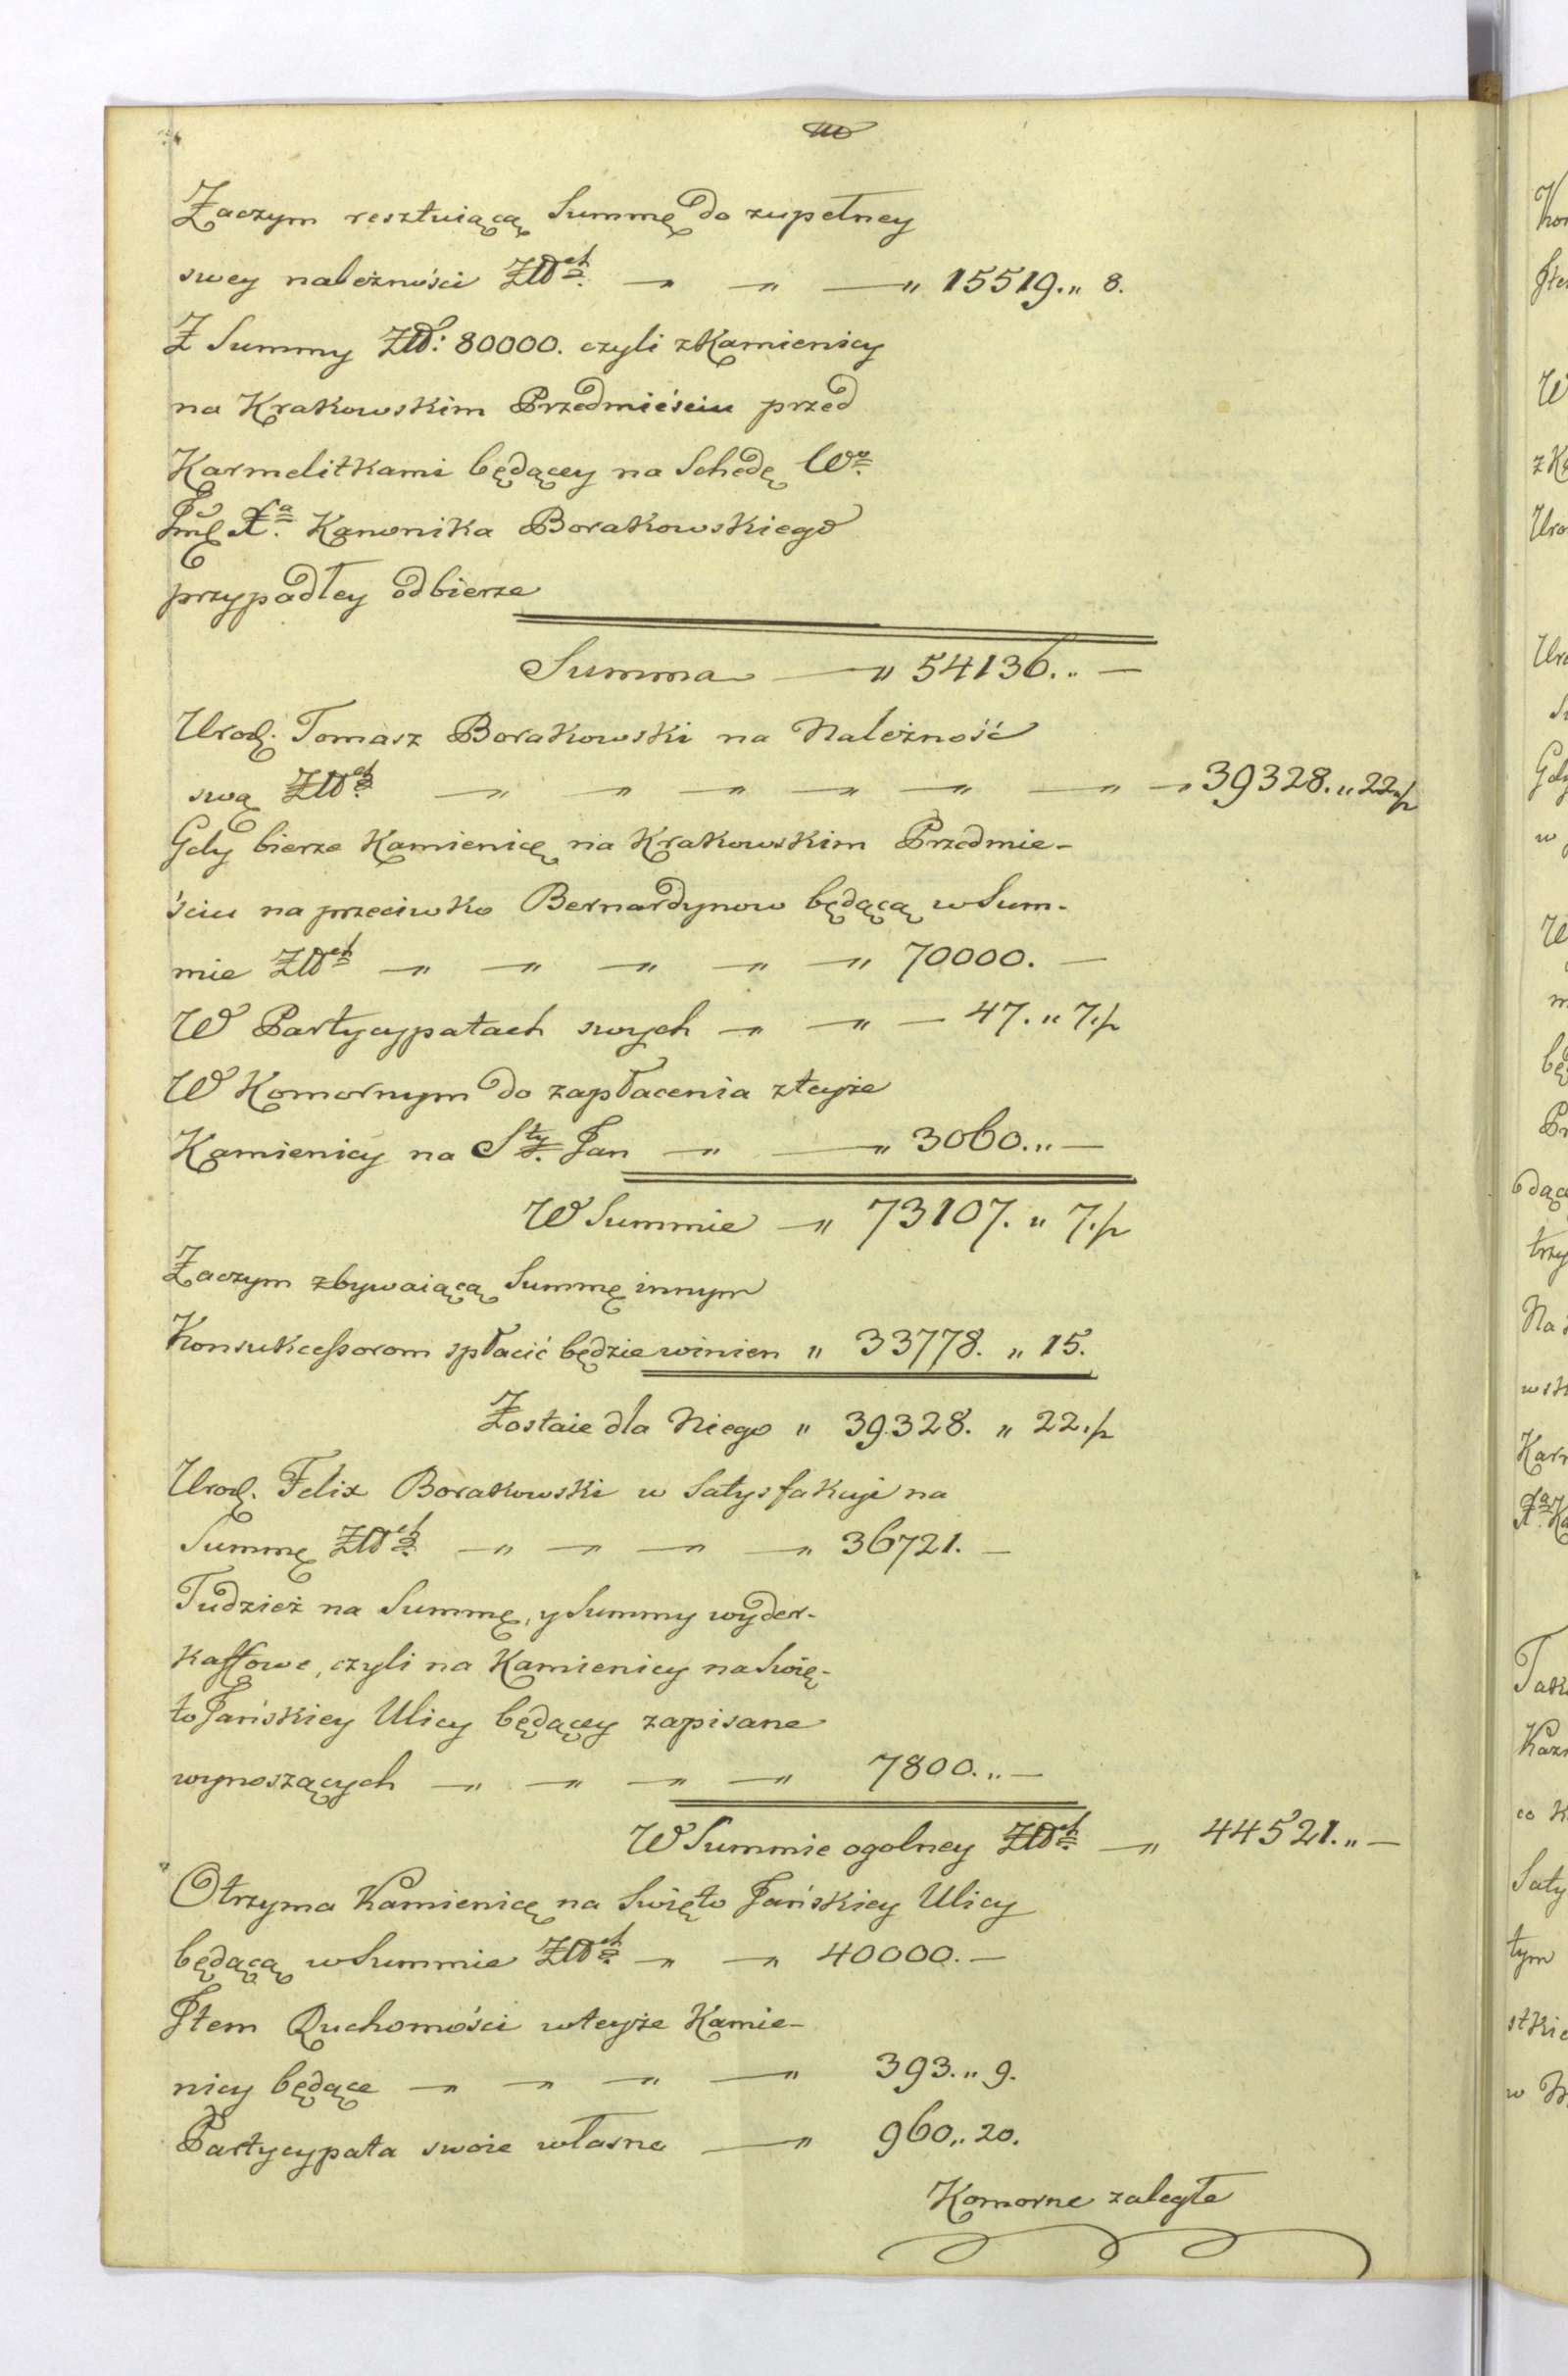 Zaczym resztuiącą Summę do zupełney
swey należności Złłch — " — " — " 15519. " 8.
Z Summy Złł: 80000. czyli z Kamienicy
na Krakowskim Przedmieściu przed
Karmelitkami będącey na Schedę Wo
Jmć Xa. Kanonika Borakowskiego
przypadłey odbierze
Summa — " 54136. " —
Urodz. Tomasz Borakowski na Należność
swą Złłch — " — " — " — " — " — " — " 39328. " 22. p
Gdy bierze Kamienicę na Krakowskim Przedmie-
ściu na przeciwko Bernardynow będącą w Sum-
mie Złłch — " — " — " — " — " 70000. —
W Partycypatach swych — " — " — 47. " 7. p
W Komornym do zapłacenia z teyże
Kamienicy na Sty. Jan — " — " 3060. " —
W Summie — " 73107. " 7. p
Zaczym zbywaiącą Summę innym
Konsukcessorom spłacić będzie winien " 33778. " 15.
Zostaie dla Niego " 39328. " 22. p
Urodz. Felix Borakowski w Satysfakcyi na
Summę Złłch — " — " — " — " 36721. —
Tudzież na Summę, y Summy wyder-
kaffowe, czyli na Kamienicy na Swię-
to Jańskiey Ulicy będącey zapisane
wynoszących — " — " — " — " 7800. " —
W Summie ogolney Złłch — " 44521. " —
Otrzyma Kamienicę na Swięto Jańskiey Ulicy
będącą w Summie Złłch — " — " 40000. —
Item Ruchomości w teyże Kamie-
nicy będące — " — " — " — " 393. " 9.
Partycypata swoie własne — " 960. " 20.
Komorne zaległe